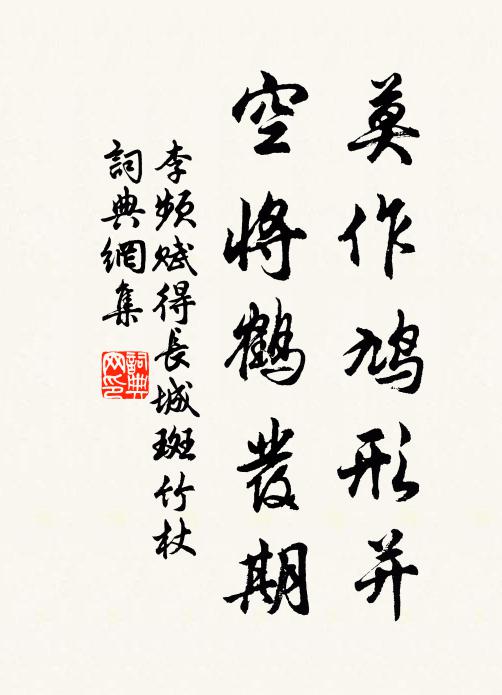 莫作鸠形并
空将鹤發期
李频赋得長城斑竹杖
詞典網集
詞典网印